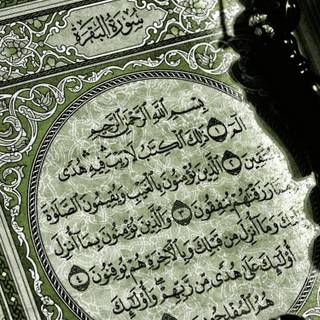 سُورَةُ البَقَرَةِ
بِسْمِ اللَّهِ الرَّحْمَنِ الرَّحِيمِ
الٓمٓ ۝١ ذَٰلِكَ الْكِتَابُ لَا رَيْبَ فِيهِ هُدًى
لِّلْمُتَّقِينَ ۝٢ الَّذِينَ يُؤْمِنُونَ بِالْغَيْبِ وَيُقِيمُونَ الصَّلَاةَ
رَزَقْنَاهُمْ يُنفِقُونَ ۝٣ وَالَّذِينَ يُؤْمِنُونَ بِمَا أُنزِلَ
إِلَيْكَ وَمَا أُنزِلَ مِن قَبْلِكَ وَبِالْآخِرَةِ هُمْ يُوقِنُونَ ۝٤
أُولَٰئِكَ عَلَىٰ هُدًى مِّن رَّبِّهِمْ وَأُولَٰئِكَ
هُمُ الْمُفْلِحُونَ